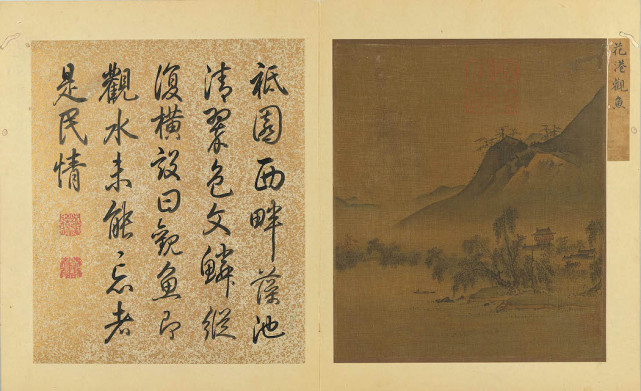 花港觀魚
祇園西畔藻池
清翠色文鱗縱
復橫設曰觀魚即
觀水未能忘者
是民情